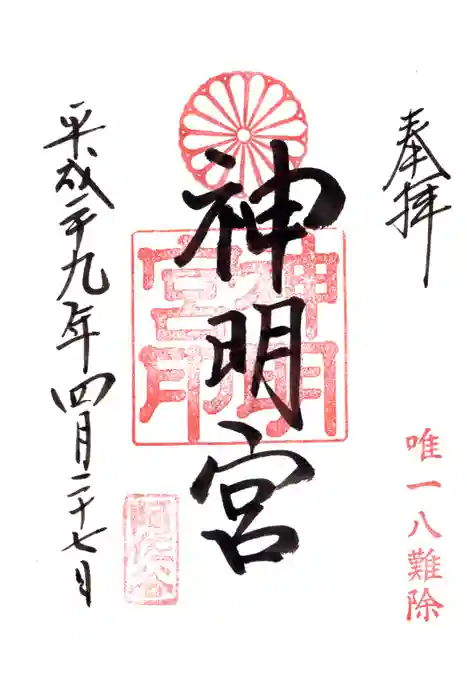 奉拝
唯一八難除
神明宮
神明
宮印
阿佐谷
平成二十九年四月二十七日